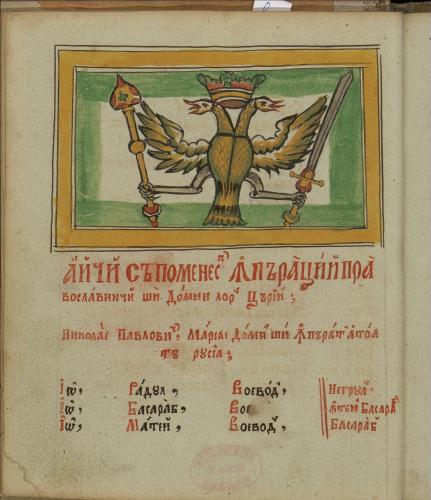 Аичи съ поменескъ Ꙟпърації пра
вославничи ши Домни лорꙋ Църїй;
Николае Павловичꙋ, Мареле Домнꙋ ши Ꙟпъратꙋ а тоа
тъ русїа;
Іѡ, Радул, Воевод, Негрул,
Іѡ, Басараб, Вое Басараб
Іѡ, Матей, Воевод, Басараб